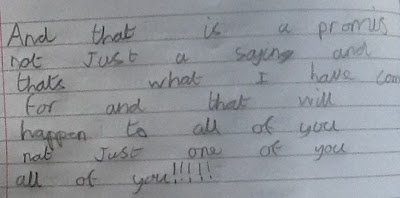 And that is a promis
not Just a saying and
thats what I have com
for and that will
happen to all of you
not Just one of you
all of you!!!!!